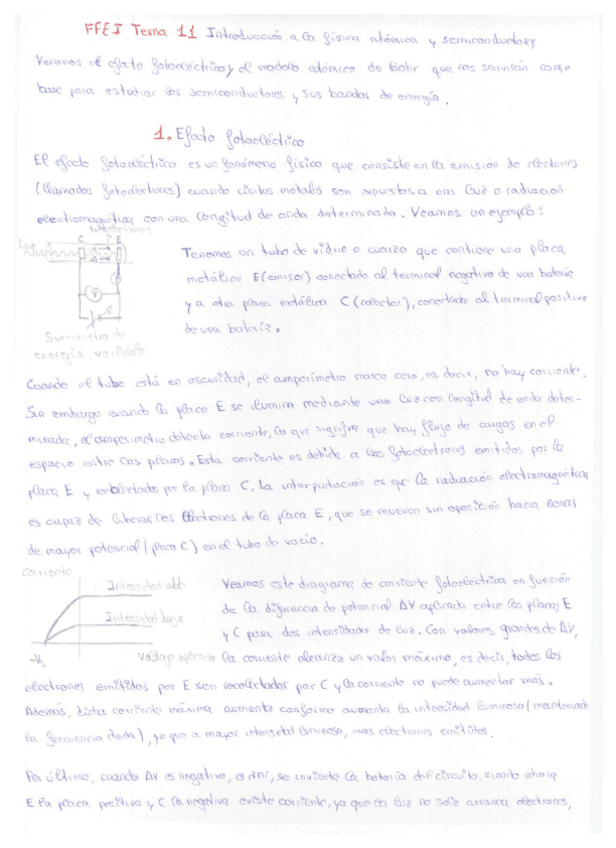 FFEI Tema 11 Introducción a la física atómica y semiconductores
Veremos el efecto fotoeléctrico y el modelo atómico de Bohr que nos servirán como
base para estudiar los semiconductores y sus bandas de energía.
1. Efecto fotoeléctrico
El efecto fotoeléctrico es un fenómeno físico que consiste en la emisión de electrones
(llamados fotoelectrones) cuando ciertos metales son expuestos a una luz o radiación
electromagnética con una longitud de onda determinada. Veamos un ejemplo:
C E
Luz
V
Suministro de
energía variable
Tenemos un tubo de vidrio o cuarzo que contiene una placa
metálica E (emisor) conectado al terminal negativo de una batería
y a otra placa metálica C (colector), conectada al terminal positivo
de una batería.
Cuando el tubo está en oscuridad, el amperímetro marca cero, es decir, no hay corriente.
Sin embargo cuando la placa E se ilumina mediante una luz con longitud de onda deter-
minada, el amperímetro detecta corriente, lo que significa que hay flujo de cargas en el
espacio entre las placas. Esta corriente es debida a los fotoelectrones emitidos por la
placa E y recolectados por la placa C. La interpretación es que la radiación electromagnética
es capaz de liberar los electrones de la placa E, que se mueven sin oposición hacia zonas
de mayor potencial (placa C) en el tubo de vacío.
Corriente
Intensidad alta
Intensidad baja
-Vs
Voltaje aplicado
Veamos este diagrama de corriente fotoeléctrica en función
de la diferencia de potencial ΔV aplicada entre las placas E
y C para dos intensidades de luz. Con valores grandes de ΔV,
la corriente alcanza un valor máximo, es decir, todos los
electrones emitidos por E son recolectados por C y la corriente no puede aumentar más.
Además, dicha corriente máxima aumenta conforme aumenta la intensidad luminosa (manteniendo
la frecuencia dada), ya que a mayor intensidad luminosa, mas electrones emitidos.
Por último, cuando ΔV es negativo, es decir, se invierte la batería del circuito, siendo ahora
E la placa positiva y C la negativa existe corriente, ya que la luz no solo arranca electrones,